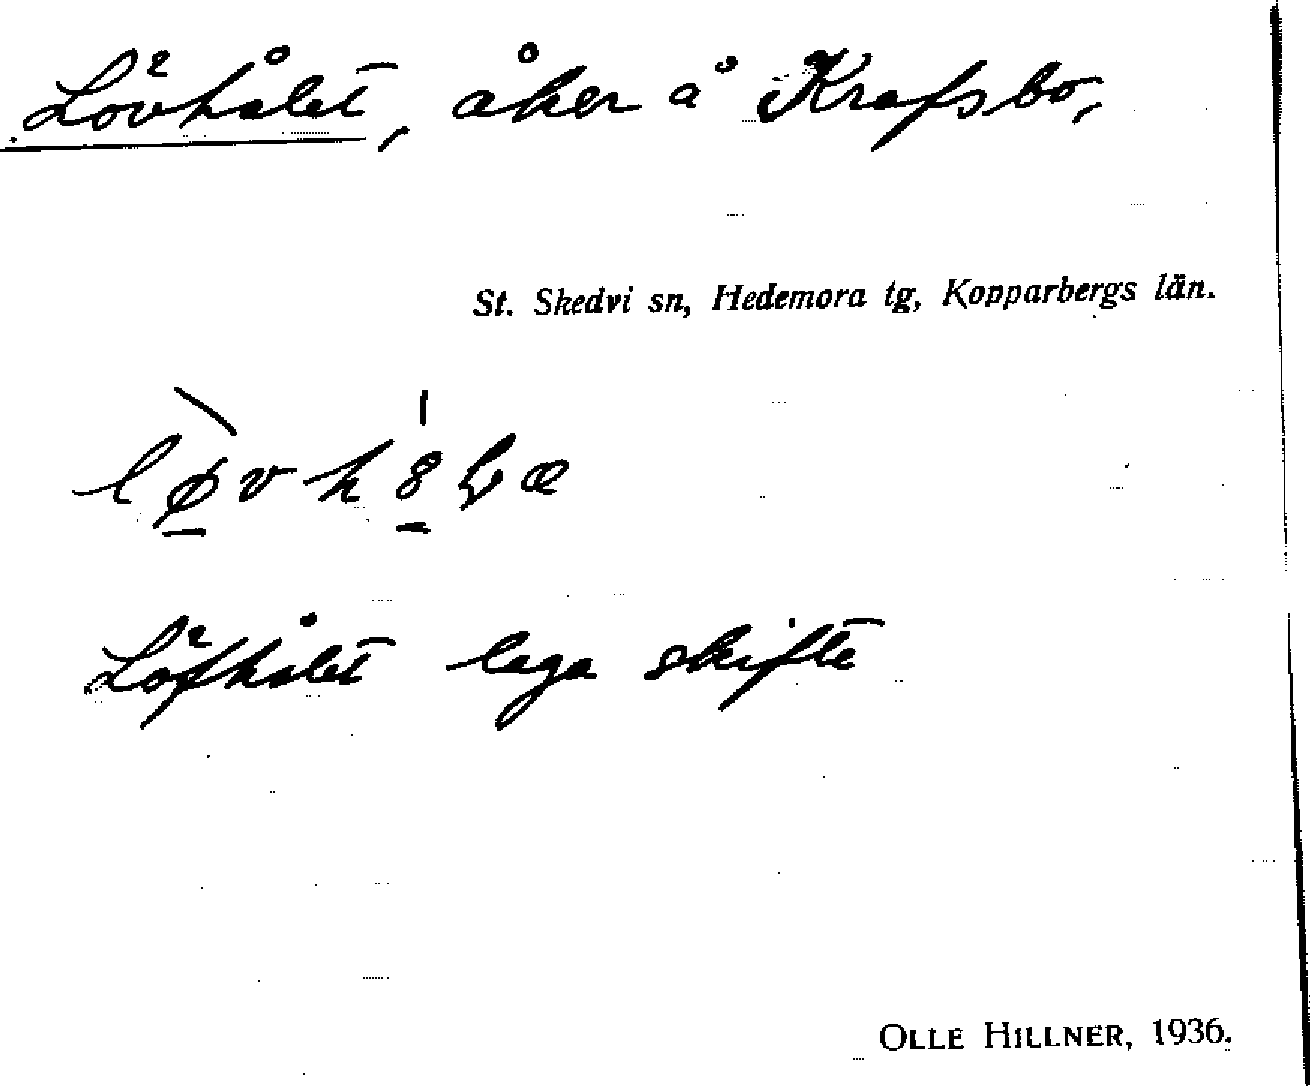 Lövhålet, åker å Krafsbo,
St. Skedvi sn, Hedemora tg, Kopparbergs län.
Löfhålet laga skifte
OLLE HILLNER, 1936.